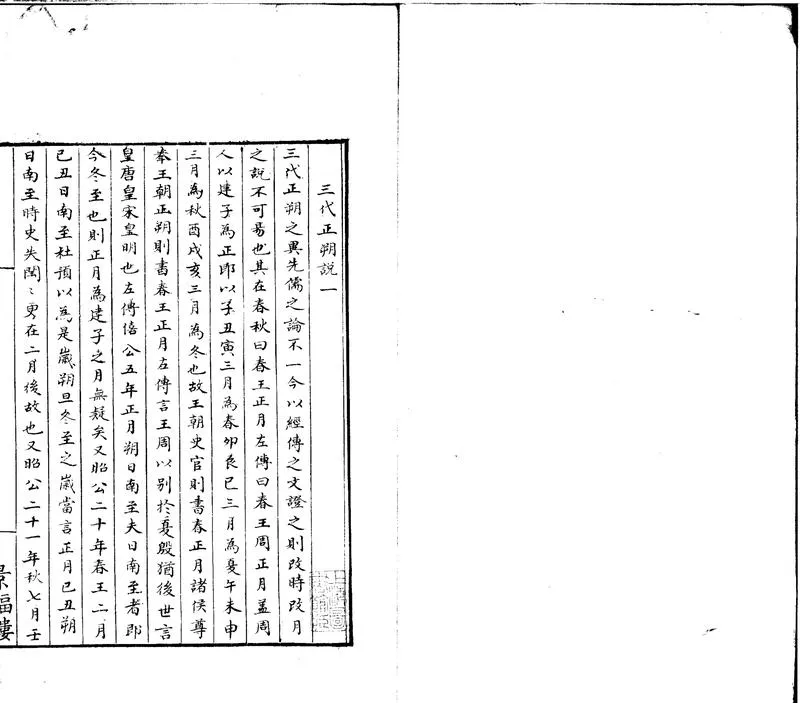 三代正朔説一
三代正朔之異先儒之論不一今以經傳之文證之則改時改月
之説不可易也其在春秋曰春王正月左傳曰春王周正月蓋周
人以建子為正即以子丑寅三月為春卯辰巳三月為夏午未申
三月為秋酉戌亥三月為冬也故王朝史官則書春正月諸侯尊
奉王朝正朔則書春王正月左傳言王周以别於夏殷猶後世言
皇唐皇宋皇明也左傳僖公五年正月朔日南至夫日南至者即
今冬至也則正月為建子之月無疑矣又昭公二十年春王二月
己丑日南至杜預以為是歲朔旦冬至之歲當言正月己丑朔
日南至時史失閏〻更在二月後故也又昭公二十一年秋七月壬
景福樓